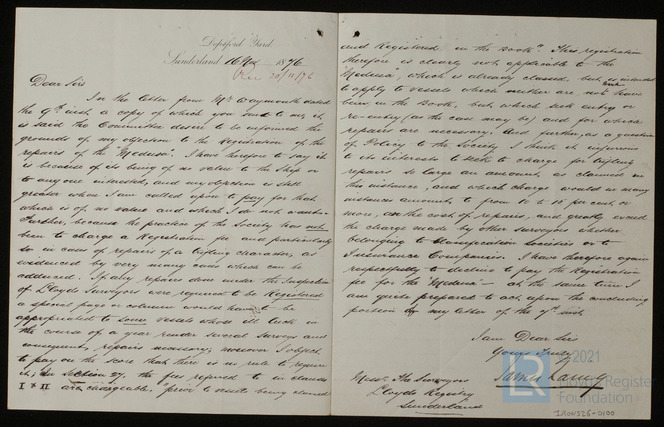 Deptford Yard.
Sunderland 16 Nov 1876
Rec 20/11/76
Dear Sirs
In the letter from Mr Waymouth dated
the 9th inst, a copy of which you send to me, it
is said the Committee desire to be informed the
grounds of my objection to the Registration of the
repairs of the "Medusa". I have therefore to say it
is because of its being of no value to the Ship or
to any one interested, and my objection is still
greater when I am called upon to pay for that
which is of no value and which I do not want.
Further, because the practice of the Society has not
been to charge a Registration fee and particularly
so in case of repairs of a trifling character, as
evidenced by very many cases which can be
adduced. If any repairs done under the Inspection
of Lloyds Surveyors were required to be Registered
a special page or column would have to be
appropriated to some vessels whose ill luck in
the course of a year render several surveys and
consequent repairs necessary; moreover I object
to pay on the score that there is no rule to require
it; in Section 27. the fees referred to in clauses
I & II are chargeable "prior to vessels being classed
and Registered in the Book". This registration
therefore is clearly not applicable to the
"Medusa", which is already classed, but is intended
to apply to vessels which neither are nor have
been in the Book, but which seek entry or
re-entry (as the case may be) and for which
repairs are necessary. And further, as a question
of Policy to the Society I think it injurious
to its interests to seek to charge for trifling
repairs so large an amount, as claimed in
this instance, and which charge would in many
instances amount to from 10 to 15 per cent or
more, on the cost of repairs, and greatly exceed
the charge made by other surveyors whether
belonging to Classification Societies or to
Insurance Companies. I have therefore again
respectfully to decline to pay the Registration
fee for the "Medusa" - at the same time I
am quite prepared to act upon the concluding
portion of my letter of the 9th inst.
I am Dear Sirs
Yours truly
James Laing
Messrs The Surveyors
Lloyds Registry
Sunderland
©2021
LR Lloyd's Register
Foundation
IRON528-0100